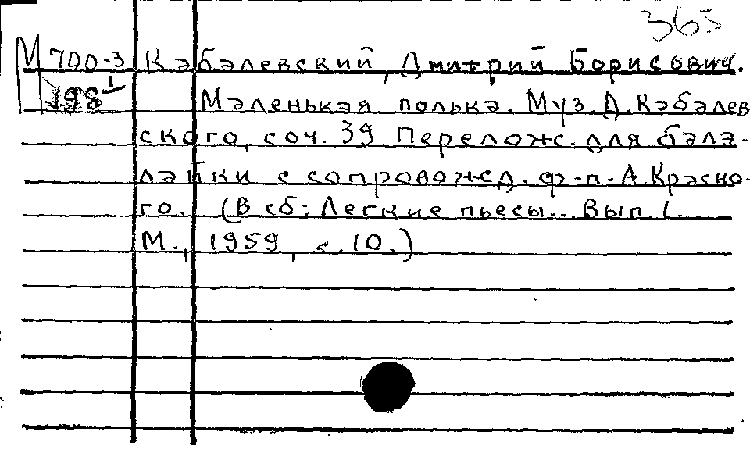 365
М 700-3 Кабалевский, Дмитрий Борисович.
198 Маленькая полька. Муз. Д. Кабалев
ского, соч. 39 Перелож. для бала-
лайки с сопровожд. ф-п. А. Красно-
го. (В сб: Легкие пьесы.. Вып 1.
М., 1959, с. 10.)